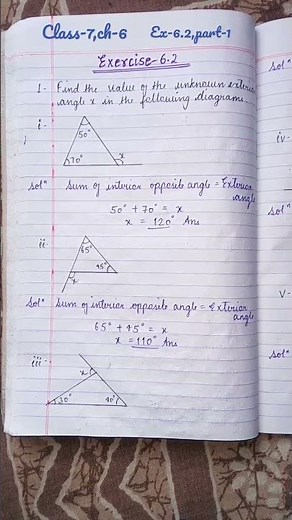 Class-7,ch-6 Ex-6.2,part-1
Exercise-6.2
1- Find the value of the unknown exterior
angle x in the following diagrams.
i-
50°
70° x
solⁿ Sum of interior opposite angle = Exterior
angle
50° + 70° = x
x = 120° Ans
ii-
65°
45°
x
solⁿ Sum of interior opposite angle = Exterior
angle
65° + 45° = x
x = 110° Ans
iii-
x
30° 40°
solⁿ
iv-
solⁿ
v-
solⁿ